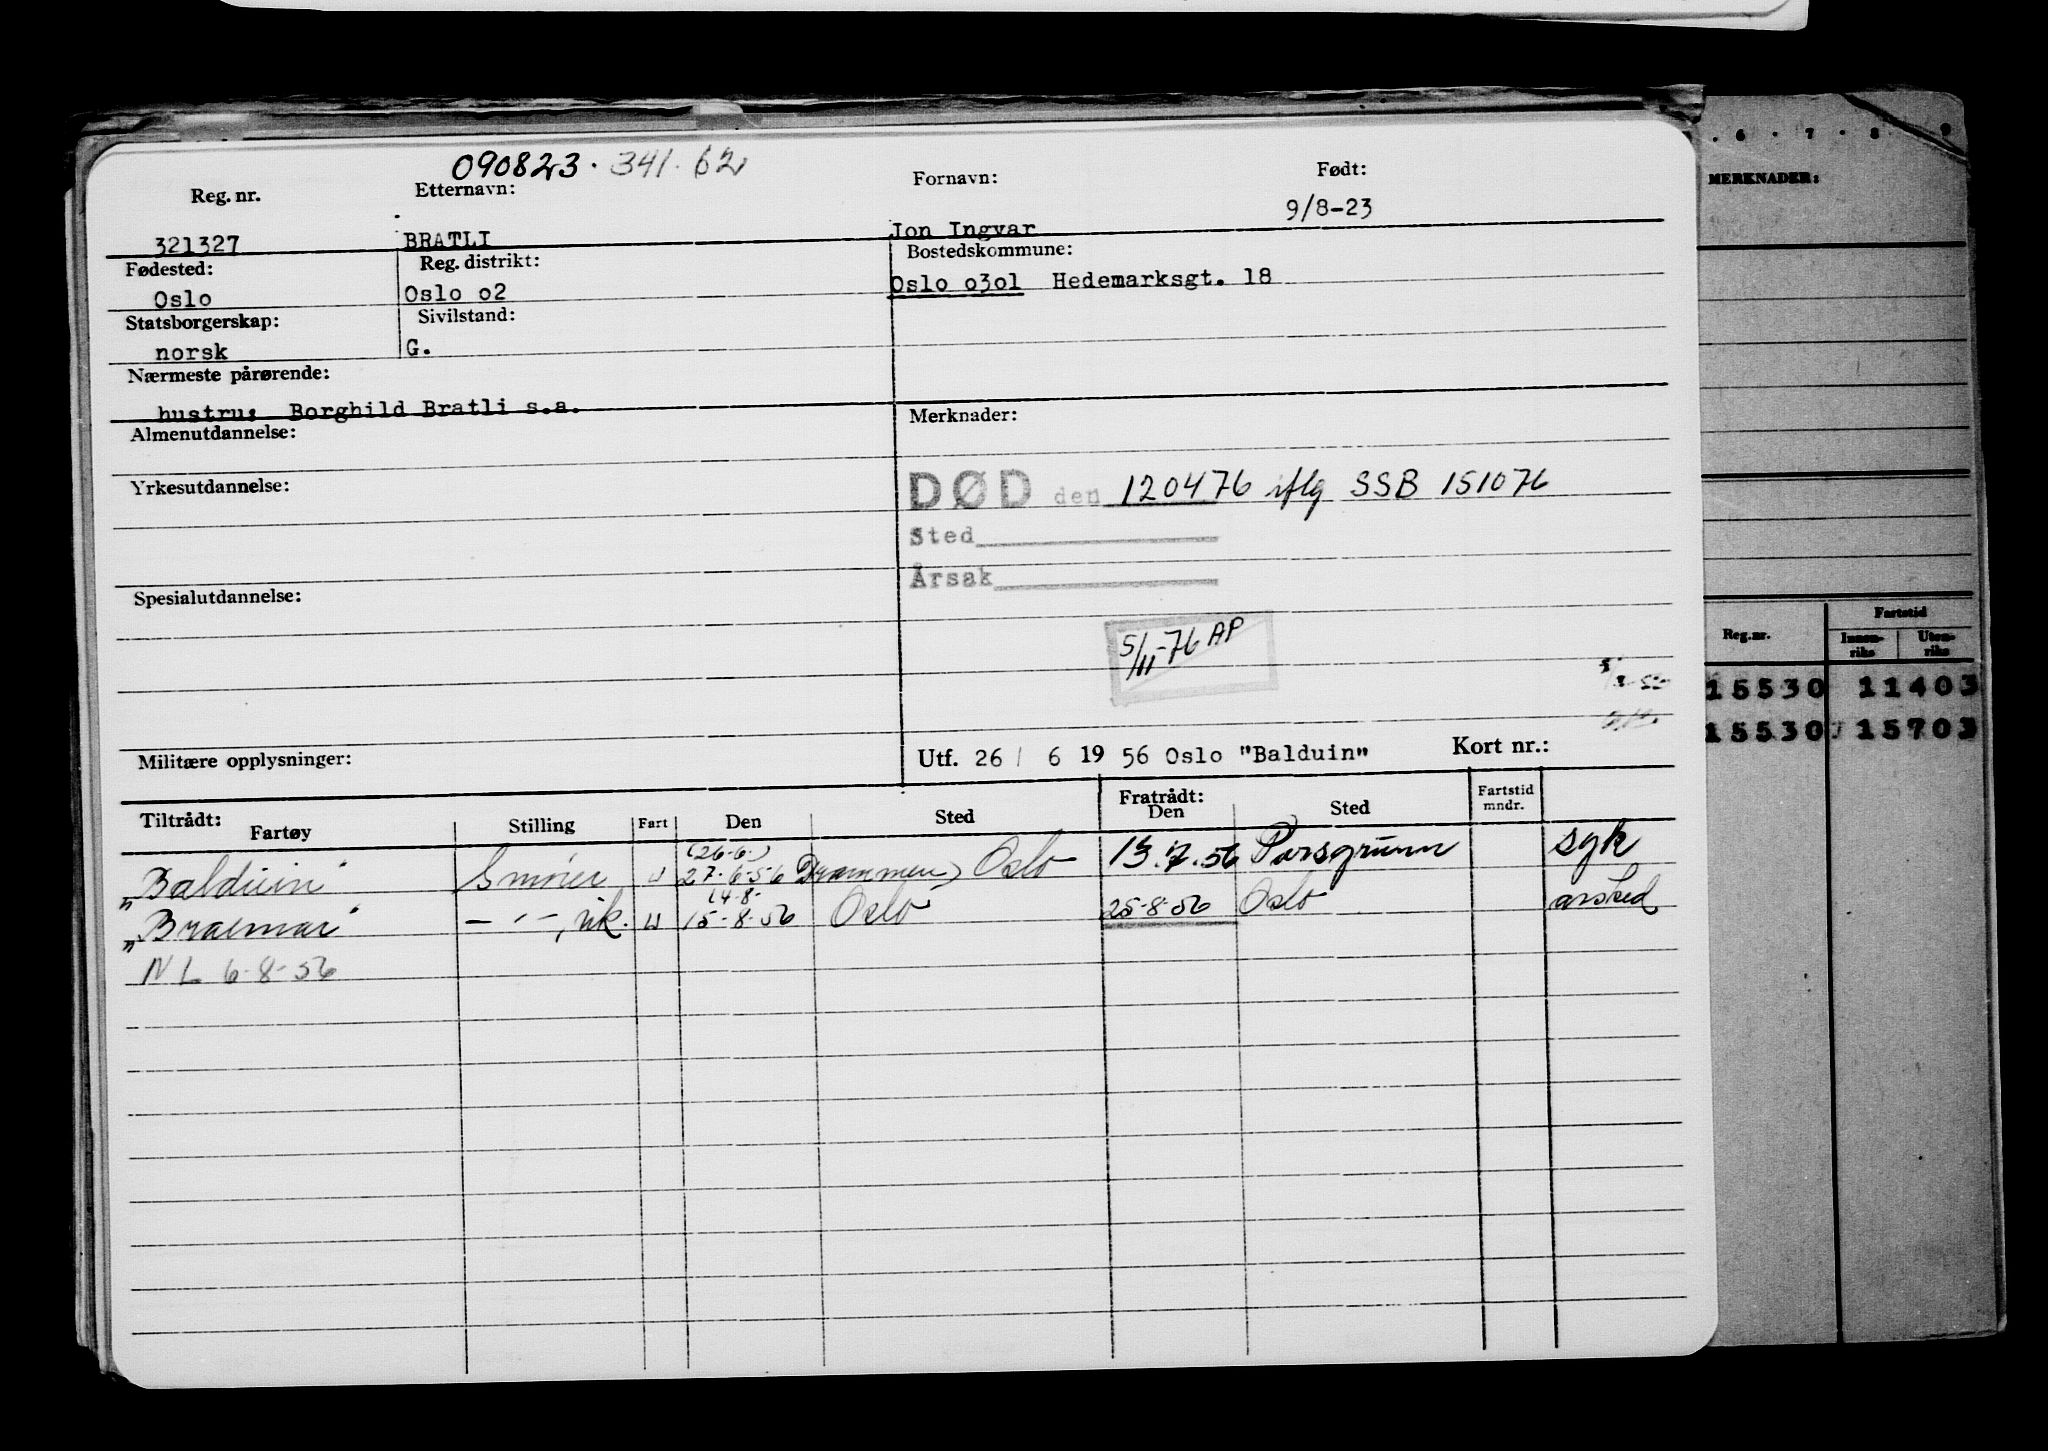 090823. 341.62
Reg. nr. Etternavn: Fornavn: Født:
321327 BRATLI Jon Ingvar 9/8-23
Fødested: Reg. distrikt: Bostedskommune:
Oslo Oslo o2 Oslo o3o1 Hedemarksgt. 18
Statsborgerskap: Sivilstand:
norsk G.
Nærmeste pårørende:
hustru: Borghild Bratli s.a.
Almenutdannelse: Merknader:
Yrkesutdannelse:
DØD den 120476 iflg SSB 151076
Sted
Årsak
Spesialutdannelse:
5/11-76 AP
Militære opplysninger: Utf. 26 / 6 19 56 Oslo "Balduin" Kort nr.:
Tiltrådt: Fratrådt: Fartstid
Fartøy Stilling Fart Den Sted Den Sted mndr.
(26-6-)
"Balduin" Smører U 27-6-56 Drammen) Oslo 13.7.56 Porsgrunn syk
14-8-
"Braemar" — " —, vik. U 15-8-56 Oslo 25-8-56 Oslo avsked
NL 6-8-56
. 6 . 7 . 8 . 9
MERKNADER:
Fartstid
Reg.nr. Innen-riks Uten-riks
15530 11403
15530 15703